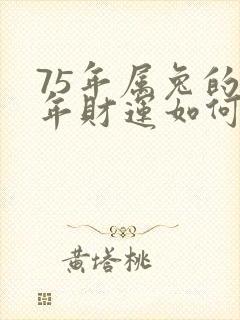 75年属兔的
年财运如何
黄塔桃